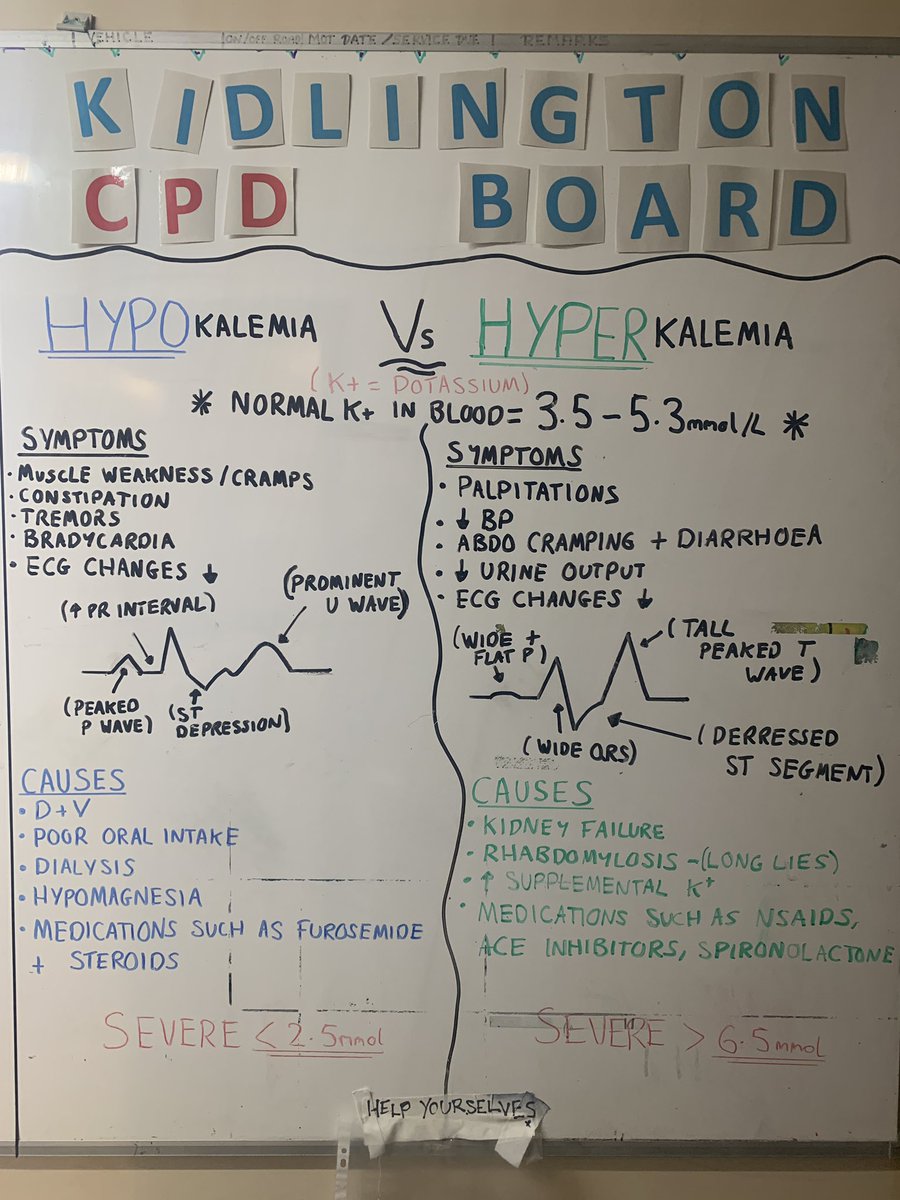 VEHICLE ON/OFF ROAD MOT DATE / SERVICE DUE REMARKS
KIDLINGTON
CPD BOARD
HYPOKALEMIA Vs HYPERKALEMIA
(K+ = POTASSIUM)
* NORMAL K+ IN BLOOD = 3.5 - 5.3mmol/L *
SYMPTOMS
• MUSCLE WEAKNESS/CRAMPS
• CONSTIPATION
• TREMORS
• BRADYCARDIA
• ECG CHANGES ↓
(↑ PR INTERVAL)
(PROMINENT
U WAVE)
(PEAKED
P WAVE)
(ST
DEPRESSION)
CAUSES
• D+V
• POOR ORAL INTAKE
• DIALYSIS
• HYPOMAGNESIA
• MEDICATIONS SUCH AS FUROSEMIDE
+ STEROIDS
SEVERE < 2.5mmol
SYMPTOMS
• PALPITATIONS
• ↓ BP
• ABDO CRAMPING + DIARRHOEA
• ↓ URINE OUTPUT
• ECG CHANGES ↓
(WIDE +
FLAT P)
(TALL
PEAKED T
WAVE)
(WIDE QRS)
(DERRESSED
ST SEGMENT)
CAUSES
• KIDNEY FAILURE
• RHABDOMYLOSIS -(LONG LIES)
• ↑ SUPPLEMENTAL K+
• MEDICATIONS SUCH AS NSAIDS,
ACE INHIBITORS, SPIRONOLACTONE
SEVERE > 6.5mmol
HELP YOURSELVES